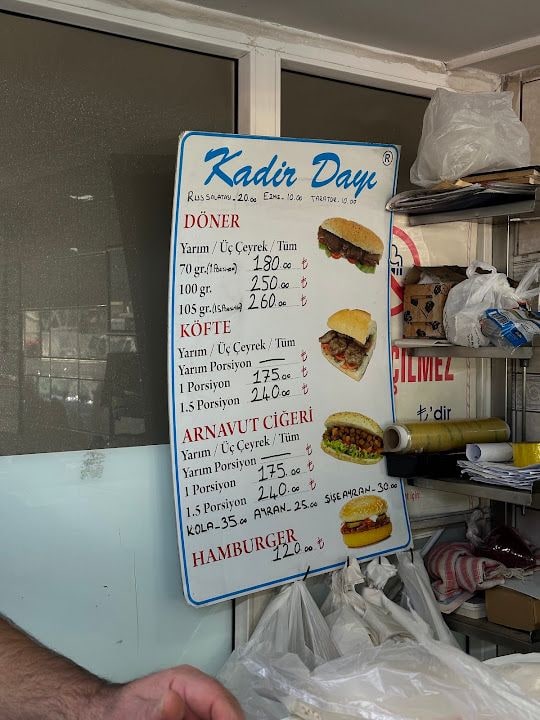 Kadir Dayı ®
RUS SALATASI_20.00 EZME_10.00 TARATOR_10.00
DÖNER
Yarım / Üç Çeyrek / Tüm
70 gr.(1 Porsiyon) 180.00 ₺
100 gr. 250.00 ₺
105 gr.(1.5 Porsiyon) 260.00 ₺
KÖFTE
Yarım / Üç Çeyrek / Tüm
Yarım Porsiyon — ₺
1 Porsiyon 175.00 ₺
1.5 Porsiyon 240.00 ₺
ARNAVUT CİĞERİ
Yarım / Üç Çeyrek / Tüm
Yarım Porsiyon — ₺
1 Porsiyon 175.00 ₺
1.5 Porsiyon 240.00 ₺
KOLA_35.00 AYRAN_25.00 ŞİŞE AYRAN_30.00
HAMBURGER 120.00 ₺
ÇİLMEZ
₺'dir
için